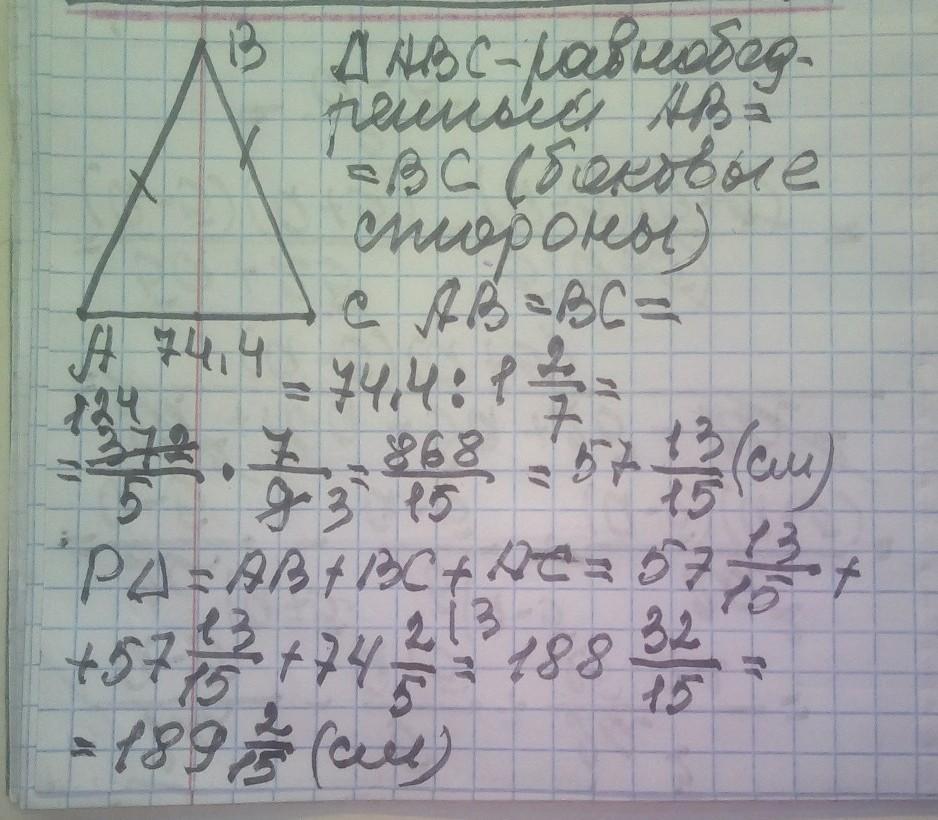 B
Δ ABC - равнобед-
ренный AB =
= BC (боковые
стороны)
A 74,4 C
AB = BC =
= 74,4 : 1 2/7 =
124
= 372/5 · 7/9 3 = 868/15 = 57 13/15 (см)
PΔ = AB + BC + AC = 57 13/15 +
+ 57 13/15 + 74 2/5 (3 = 188 32/15 =
= 189 2/15 (см)